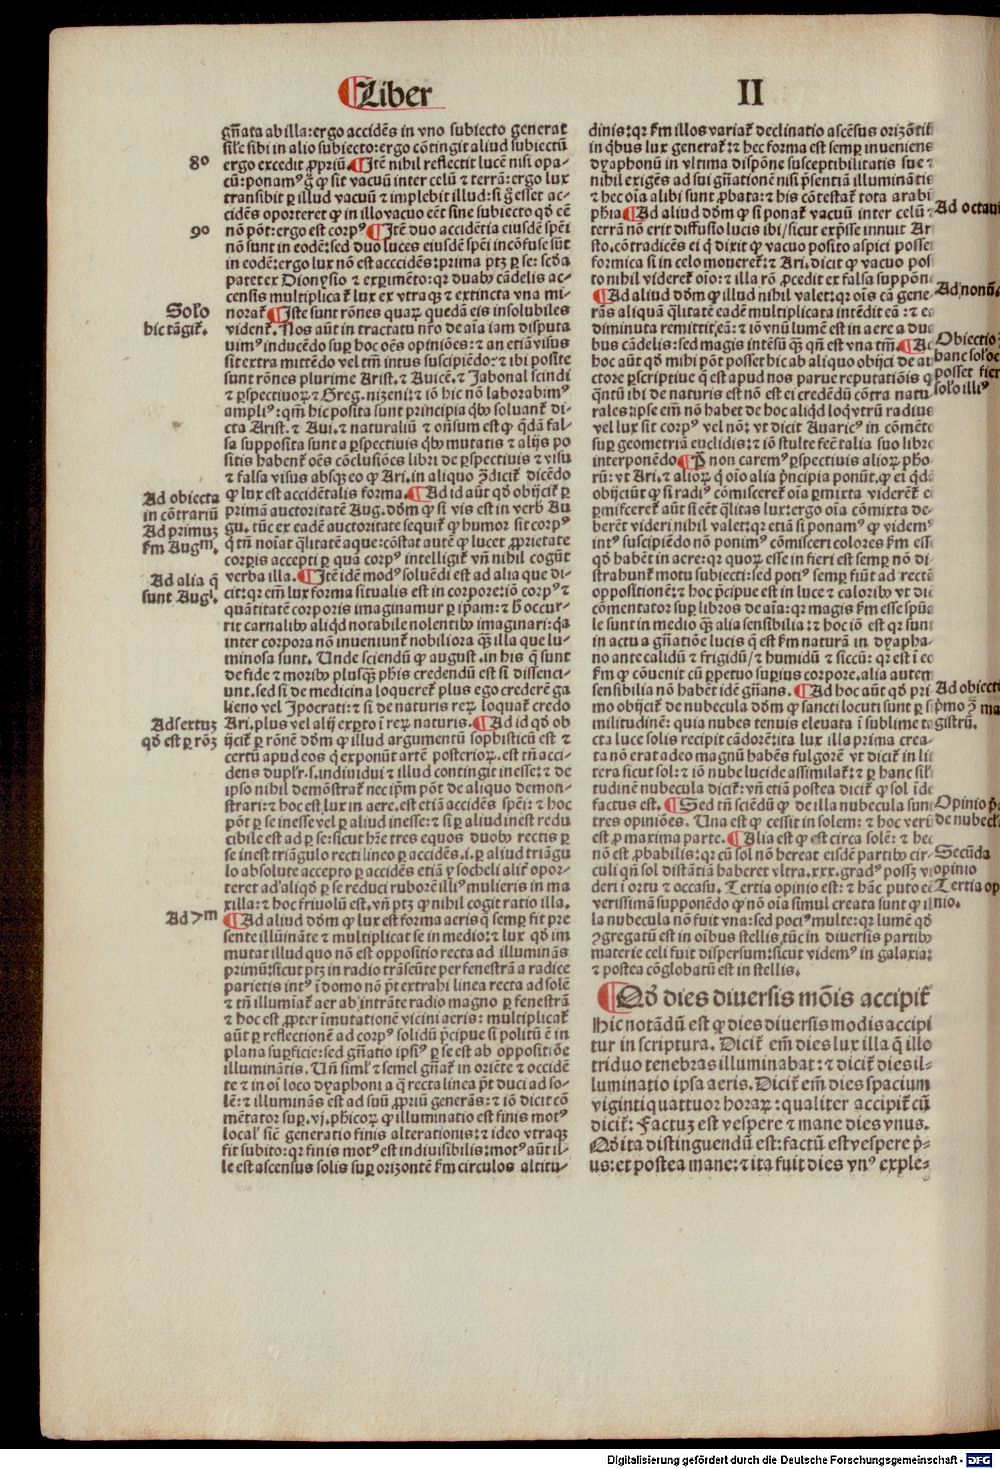 Liber
II
gñata ab illa: ergo accidẽs in vno subiecto generat
sile sibi in alio subiecto: ergo cõtingit aliud subiectũ
8º
ergo excedit ꝓpriũ. ¶ Itẽ nihil reflectit lucẽ nisi opa-
cũ: ponamꝰ g̃ ꝙ sit vacuũ inter celũ ⁊ terrã: ergo lux
transibit ꝑ illud vacuũ ⁊ implebit illud: si g̃ esset ac-
cidẽs oporteret ꝙ in illo vacuo eẽt sine subiecto qd̃ eẽ
9º
nõ põt: ergo est corpꝰ ¶ Itẽ duo accidẽtia eiusdẽ spẽi
nõ sunt in eodẽ: sed duo luces eiusdẽ spẽi incõfuse sũt
in eodẽ: ergo lux nõ est acccidẽs: prima ptꝫ ꝑ se: scd̃a
patet ex Dionysio ⁊ experimẽto: qꝛ duabꝰ cãdelis ac-
censis multiplicat̃ lux ex vtraqꝫ ⁊ extincta vna mi-
Solo
hic tãgit̃.
norat̃. ¶ Iste sunt rõnes quaꝝ quedã eis insolubiles
vident̃. Nos aũt in tractatu nr̃o de aĩa iam disputa
uimꝰ inducẽdo suꝑ hoc oẽs opiniões: ⁊ an etiã visus
sit extra mittẽdo vel tm̃ intus suscipiẽdo: ⁊ ibi posite
sunt rõnes plurime Arist. ⁊ Auicẽ. ⁊ Jahonal scindi
⁊ ꝑspectiuoꝝ ⁊ Greg. nizeni: ⁊ iõ hic nõ laborabimꝰ
ampliꝰ: qm̃ hic posita sunt principia qbꝰ soluant̃ di-
cta Arist. ⁊ Aui. ⁊ naturaliũ ⁊ oñsum est ꝙ q̃dã fal-
sa supposita sunt a ꝑspectiuis qbꝰ mutatis ⁊ alijs po
sitis habent̃ oẽs cõclusiões libri de ꝑspectiuis ⁊ visu
⁊ falsa visus absqꝫ eo ꝙ Ari. in aliquo ꝯ̃dicit̃ dicẽdo
Ad obiecta
in cõtrariũ
Ad primuꝫ
fm Augm̃.
ꝙ lux est accidẽtalis forma. ¶ Ad id aũt qd̃ obijcit̃ ꝑ
primã auctoritatẽ Aug. dõm ꝙ si vis est in verb Au
gu. tũc ex eadẽ auctoritate sequit̃ ꝙ humor sit corpꝰ
q̃ tñ noĩat q̃litatẽ aque: cõstat autẽ ꝙ lucet ꝓprietate
corꝑis accepti ꝑ quã corpꝰ intelligit̃ vñ nihil cogũt
Ad alia q̃
sunt Augl.
verba illa. ¶ Itẽ idẽ modꝰ soluẽdi est ad alia que di-
cit: qꝛ em̃ lux forma situalis est in corpore: iõ corpꝰ ⁊
quãtitatẽ corporis imaginamur ꝑ ip̃am: ⁊ h̃ occur-
rit carnalibꝰ aliqd notabile nolentibꝰ imaginari: qa
inter corpora nõ inueniunt̃ nobiliora q̃ꝫ illa que lu-
minosa sunt. Unde sciendũ ꝙ august. in his q̃ sunt
de fide ⁊ moribꝰ plusqꝫ phis credendũ est si dissenci-
unt. sed si de medicina loqueret̃ plus ego crederẽ ga
lieno vel Ipocrati: ⁊ si de naturis reꝝ loquat̃ credo
Ad sertuꝫ
qd̃ est ꝑ rõꝫ
Ari. plus vel alij exꝑto ĩ reꝝ naturis. ¶ Ad id qd̃ ob
ijcit̃ ꝑ rõnẽ dõm ꝙ illud argumentũ sophisticũ est ⁊
certũ apud eos q̃ exponũt artẽ posterioꝝ. est tñ acci-
dens duplr̃. s. indiuidui ⁊ illud contingit inesse: ⁊ de
ipso nihil demõstrat̃ nec ip̃m põt de aliquo demon-
strari: ⁊ hoc est lux in aere. est etiã accidẽs spẽi: ⁊ hoc
põt ꝑ se inesse vel ꝑ aliud inesse: ⁊ si ꝑ aliud inest redu
cibile est ad ꝑ se: sicut hr̃e tres equos duobꝰ rectis ꝑ
se inest triãgulo rectilineo ꝑ accidẽs. i. ꝑ aliud triãgu
lo absolute accepto ꝑ accidẽs etiã ꝑ socheli alit̃ opor-
teret ad aliqd̃ ꝑ se reduci ruborẽ illiꝰ mulieris in ma
xilla: ⁊ hoc friuolũ est. vñ ptꝫ ꝙ nihil cogit ratio illa.
Ad 7m
¶ Ad aliud dõm ꝙ lux est forma aeris q̃ semꝑ fit pre
sente illũinãte ⁊ multiplicat se in medio: ⁊ lux qd̃ im
mutat illud quo nõ est oppositio recta ad illuminãs
primũ: sicut ptꝫ in radio trãseũte per fenestrã a radice
parietis intꝰ ĩ domo nõ p̃t extrahi linea recta ad solẽ
⁊ tñ illumiat̃ aer ab intrãte radio magno ꝑ fenestrã
⁊ hoc est ꝓpter ĩmutationẽ vicini aeris: multiplicat̃
aũt ꝑ reflectionẽ ad corpꝰ solidũ p̃cipue si politũ ẽ in
plana suꝑficie: sed gñatio ipsiꝰ ꝑ se est ab oppositiõe
illuminãtis. Uñ siml̃ ⁊ semel gñat̃ in oriẽte ⁊ occidẽ
te ⁊ in oĩ loco dyaphoni a q̃ recta linea p̃t duci ad so-
lẽ: ⁊ illuminãs est ad suũ ꝓpriũ generãs: ⁊ iõ dicit cõ
mẽtator suꝑ. vj. phicoꝝ ꝙ illuminatio est finis motꝰ
localꝭ sicẽ generatio finis alterationis: ⁊ ideo vtraqꝫ
fit subito: qꝛ finis motꝰ est indiuisibilis: motꝰ aũt il-
le est ascensus solis suꝑ orizontẽ fm circulos altitu-
dinis: qꝛ fm illos variat̃ declinatio ascẽsus orizõtiũ
in qbus lux generat̃: ⁊ hec forma est semꝑ inueniens
dyaphonũ in vltima dispõne susceptibilitatis sue ⁊
nihil exigẽs ad sui gñationẽ nisi p̃sentiã illuminãtis
⁊ hec oĩa alibi sunt ꝓbata: ⁊ his cõtestat̃ tota arabũ
Ad octaui
phia ¶ Ad aliud dõm ꝙ si ponat̃ vacuũ inter celũ ⁊
terrã nõ erit diffusio lucis ibi / sicut exp̃sse innuit Ar
sto. cõtradicẽs ei q̃ dixit ꝙ vacuo posito aspici posse
formica si in celo moueret̃: ⁊ Ari. dicit ꝙ vacuo pos
to nihil videret̃ oĩo: ⁊ illa rõ ꝓcedit ex falsa suppõne
Ad nonũ
¶ Ad aliud dõm ꝙ illud nihil valet: qꝛ oĩs cã gene
rãs aliquã q̃litatẽ eadẽ multiplicata intẽdit eã: ⁊ eã
diminuta remittit eã: ⁊ iõ vnũ lumẽ est in aere a dua
Obiectio
hanc soloẽ
posset fier
solo illiꝰ
bus cãdelis: sed magis intẽsũ q̃ꝫ qñ est vna tm̃. ¶ Ad
hoc aũt qd̃ mihi põt posset hic ab aliquo obijci de au
ctore ꝑscriptiue q̃ est apud nos parue reputatiõis q
q̃ntũ ibi de naturis est nõ est ei credẽdũ cõtra natu
rales: ipse em̃ nõ habet de hoc aliqd loqvtrũ radius
vel lux sit corpꝰ vel nõ: vt dicit Auaricꝰ in cõmẽto
suꝑ geometriã euclidis: ⁊ iõ stulte fecẽ talia suo libro
interponẽdo ¶ P̃ non caremꝰ ꝑspectiuis alioꝝ pho
rũ: vt Ari. ⁊ alioꝝ q̃ oĩo alia p̃ncipia ponũt. ꝙ ei q̃dã
obijciũt ꝙ si radiꝰ cõmisceret̃ oĩa ꝑmixta viderẽt̃ e
ꝑmisceret̃ aũt si eẽt q̃litas lux: ergo oĩa cõmixta de-
berẽt videri nihil valet: qꝛ etiã si ponamꝰ ꝙ videmꝰ
intꝰ suscipiẽdo nõ ponimꝰ cõmisceri colores fm esse
qd̃ habẽt in aere: qꝛ quoꝝ esse in fieri est semꝑ nõ di
strahunt̃ motu subiecti: sed potiꝰ semꝑ fiũt ad rectã
oppositionẽ: ⁊ hoc p̃cipue est in luce ⁊ caloribꝰ vt dic
cõmentator suꝑ libros de aĩa: qꝛ magis fm esse spũa
le sunt in medio q̃ꝫ alia sensibilia: ⁊ hoc iõ est qꝛ sunt
in actu a gñatiõe lucis q̃ est fm naturã in dyapha-
no ante calidũ ⁊ frigidũ / ⁊ humidũ ⁊ siccũ: qꝛ est ĩ eo
fm ꝙ cõuenit cũ ꝑpetuo suꝑius corpore. alia autem
Ad obiecti
p̃mo ꝯ̃ ma
gistrũ.
sensibilia nõ habẽt idẽ gñans. ¶ Ad hoc aũt qd̃ pri
mo obijcit̃ de nubecula dõm ꝙ sancti locuti sunt ꝑ si
militudinẽ: quia nubes tenuis eleuata ĩ sublime ta
cta luce solis recipit cãdorẽ: ita lux illa prima crea-
ta nõ erat adeo magnũ habẽs fulgorẽ vt dicit̃ in lit
tera sicut sol: ⁊ iõ nube lucide assimilat̃: ⁊ ꝑ hanc sili
tudinẽ nubecula dicit̃: vñ etiã postea dicit̃ ꝙ sol ĩde
Opinio p̃a
de nubecl̃a
factus est. ¶ Sed tñ sciẽdũ ꝙ de illa nubecula sunt
tres opiniões. Una est ꝙ cessit in solem: ⁊ hoc verũ
est ꝓ maxima parte. ¶ Alia est ꝙ est circa solẽ: ⁊ hec
Secũda
opinio
nõ est ꝓbabilis: qꝛ cũ sol nõ hereat eisdẽ partibꝰ cir-
culi qñ sol distãtiã haberet vltra. xxx. gradꝰ possꝫ vi
Tertia op
nio.
deri i ortu ⁊ occasu. Tertia opinio est: ⁊ hãc puto eẽ
verissimã supponẽdo ꝙ nõ oĩa simul creata sunt ꝙ il
la nubecula nõ fuit vna: sed pociꝰ multe: qꝛ lumẽ qd̃
ꝯgregatũ est in oĩbus stellis tũc in diuersis partibꝰ
materie celi fuit dispersum: sicut videmꝰ in galaxia:
⁊ postea cõglobatũ est in stellis.
¶ Qd̃ dies diuersis mõis accipit̃
Hic notãdũ est ꝙ dies diuersis modis accipi
tur in scriptura. Dicit̃ em̃ dies lux illa q̃ illo
triduo tenebras illuminabat: ⁊ dicit̃ dies il-
luminatio ipsa aeris. Dicit̃ em̃ dies spacium
vigintiquattuor horaꝝ: qualiter accipit̃ cũ
dicit̃: Factuꝫ est vespere ⁊ mane dies vnus.
Qd̃ ita distinguendũ est: factũ est vespere p̃-
us: et postea mane: ⁊ ita fuit dies vnꝰ exple-
Digitalisierung gefördert durch die Deutsche Forschungsgemeinschaft - DFG